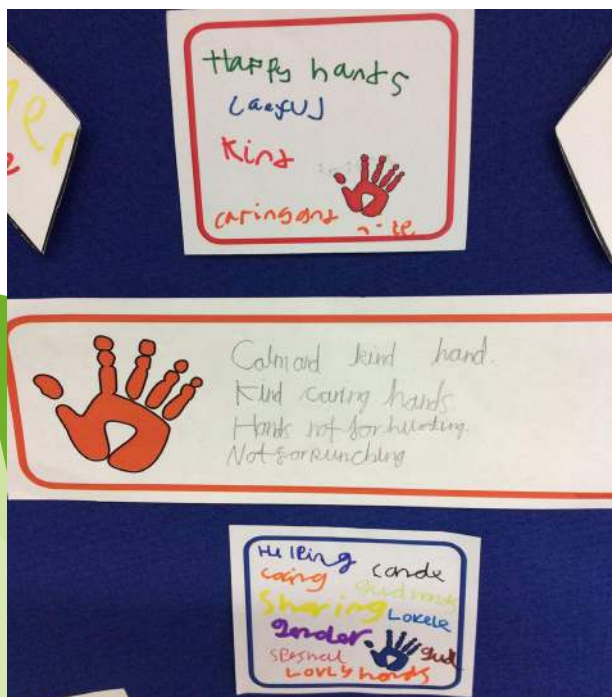 Happy hands
Kind
caring and
Calm and kind hand.
Kind caring hands
Hands not for hurting.
Not for punching
Helping
caring
gud hands
Sharing
Lokele
gender
speshul
gud
LOVLY hands